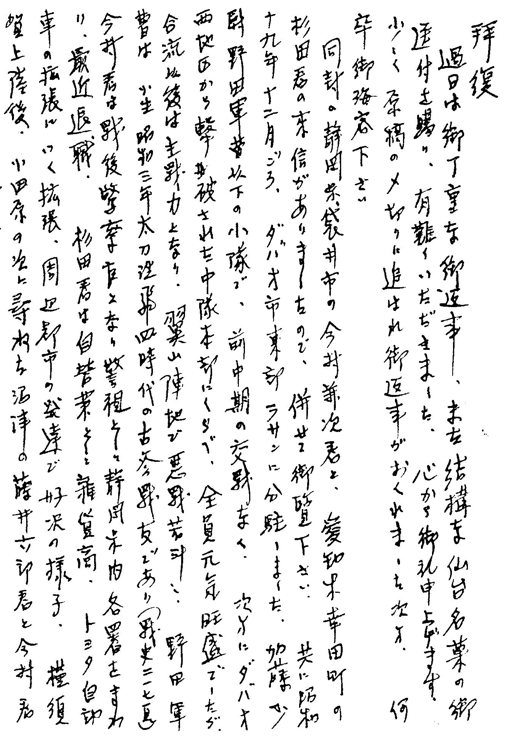 拝復
過日は御丁重な御返事、また結構な仙台名菓の御
送付を賜り、有難くいただきました。心から御礼申上げます。
少々原稿の〆切りに追はれ御返事がおくれました次才。何
卒御海容下さい
同封の静岡県袋井市の今村兼次君と、愛知県幸田町の
杉田君の来信がありましたので、併せて御覧下さい。共に昭和
十九年十二月ごろ、ダバオ市東部ラサンに分駐しました。加藤少
尉野田軍曹以下の小隊で、前中期の交戦なく、次才にダバオ
西地区から撃破された中隊本部にくらべ、全員元気旺盛でしたが、
合流以後は主戦力となり、翼山陣地で悪戦苦斗し、野田軍
曹は小生昭和三年太刀洗飛四時代の古参戦友であり(戦史二七頁
今村君は戦後警察官となり警視として静岡県内各署をまわ
り、最近退職。杉田君は自営業として雑貨商。トヨタ自動
車の拡張につぐ拡張、周辺都市の発達で好況の様子。横須
賀上陸後、小田原の次に尋ねた沼津の藤井六郎君と今村君